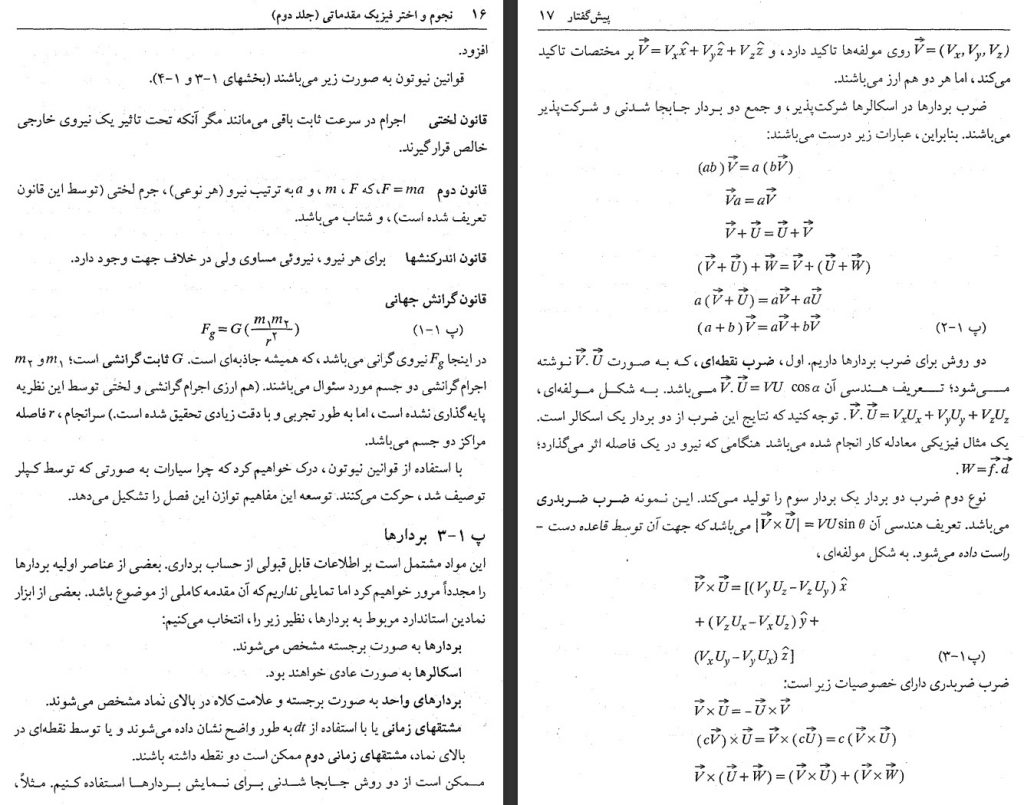 ۱۶ نجوم و اختر فیزیک مقدماتی (جلد دوم)
افزود.
قوانین نیوتون به صورت زیر می‌باشند (بخشهای ۱-۳ و ۱-۴).
قانون لختی اجرام در سرعت ثابت باقی می‌مانند مگر آنکه تحت تاثیر یک نیروی خارجی
خالص قرار گیرند.
قانون دوم F = ma، که m ، F ، و a به ترتیب نیرو (هر نوعی)، جرم لختی (توسط این قانون
تعریف شده است)، و شتاب می‌باشد.
قانون اندرکنشها برای هر نیرو، نیروئی مساوی ولی در خلاف جهت وجود دارد.
قانون گرانش جهانی
(پ ۱-۱) F_g = G (m₁m₂ / r²)
در اینجا F_g نیروی گرانی می‌باشد، که همیشه جاذبه‌ای است. G ثابت گرانشی است؛ m₁ و m₂
اجرام گرانشی دو جسم مورد سئوال می‌باشند. (هم ارزی اجرام گرانشی و لختی توسط این نظریه
پایه گذاری نشده است، اما به طور تجربی و با دقت زیادی تحقیق شده است.) سرانجام، r فاصله
مراکز دو جسم می‌باشد.
با استفاده از قوانین نیوتون، درک خواهیم کرد که چرا سیارات به صورتی که توسط کپلر
توصیف شد، حرکت می‌کنند. توسعه این مفاهیم توازن این فصل را تشکیل می‌دهد.
پ ۱-۳ بردارها
این مواد مشتمل است بر اطلاعات قابل قبولی از حساب برداری. بعضی از عناصر اولیه بردارها
را مجدداً مرور خواهیم کرد اما تمایلی نداریم که آن مقدمه کاملی از موضوع باشد. بعضی از ابزار
نمادین استاندارد مربوط به بردارها، نظیر زیر را، انتخاب می‌کنیم:
بردارها به صورت برجسته مشخص می‌شوند.
اسکالرها به صورت عادی خواهند بود.
بردارهای واحد به صورت برجسته و علامت کلاه در بالای نماد مشخص می‌شوند.
مشتقهای زمانی یا با استفاده از dt به طور واضح نشان داده می‌شوند و یا توسط نقطه‌ای در
بالای نماد، مشتقهای زمانی دوم ممکن است دو نقطه داشته باشند.
ممکن است از دو روش جابجا شدنی برای نمایش بردارها استفاده کنیم. مثلاً،
پیش‌گفتار ۱۷
V⃗ = (Vx, Vy, Vz) روی مولفه‌ها تاکید دارد، و V⃗ = Vx x̂ + Vy ẑ + Vz ẑ بر مختصات تاکید
می‌کند، اما هر دو هم ارز می‌باشند.
ضرب بردارها در اسکالرها شرکت‌پذیر، و جمع دو بردار جابجا شدنی و شرکت‌پذیر
می‌باشند. بنابراین، عبارات زیر درست می‌باشند:
(ab) V⃗ = a (bV⃗)
V⃗a = aV⃗
V⃗ + U⃗ = U⃗ + V⃗
(V⃗ + U⃗) + W⃗ = V⃗ + (U⃗ + W⃗)
a (V⃗ + U⃗) = aV⃗ + aU⃗
(پ ۱-۲) (a + b) V⃗ = aV⃗ + bV⃗
دو روش برای ضرب بردارها داریم. اول، ضرب نقطه‌ای، که به صورت V⃗. U⃗ نوشته
می‌شود؛ تعریف هندسی آن V⃗. U⃗ = VU cos α می‌باشد. به شکل مولفه‌ای،
V⃗. U⃗ = VxUx + VyUy + VzUz. توجه کنید که نتایج این ضرب از دو بردار یک اسکالر است.
یک مثال فیزیکی معادله کار انجام شده می‌باشد هنگامی که نیرو در یک فاصله اثر می‌گذارد؛
W = f⃗. d⃗.
نوع دوم ضرب دو بردار یک بردار سوم را تولید می‌کند. این نمونه ضرب ضربدری
می‌باشد. تعریف هندسی آن |V⃗ × U⃗| = VU sin θ می‌باشد که جهت آن توسط قاعده دست -
راست داده می‌شود. به شکل مولفه‌ای،
V⃗ × U⃗ = [(Vy Uz – Vz Uy) x̂
+ (Vz Ux – Vx Uz) ŷ +
(پ ۱-۳) (Vx Uy – Vy Ux) ẑ]
ضرب ضربدری دارای خصوصیات زیر است:
V⃗ × U⃗ = – U⃗ × V⃗
(cV⃗) × U⃗ = V⃗ × (cU⃗) = c (V⃗ × U⃗)
V⃗ × (U⃗ + W⃗) = (V⃗ × U⃗) + (V⃗ × W⃗)